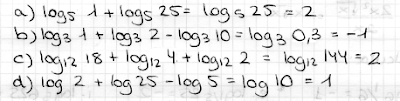 a) log₅ 1 + log₅ 25 = log₅ 25 = 2
b) log₃ 1 + log₃ 2 - log₃ 10 = log₃ 0,3 = -1
c) log₁₂ 18 + log₁₂ 4 + log₁₂ 2 = log₁₂ 144 = 2
d) log 2 + log 25 - log 5 = log 10 = 1